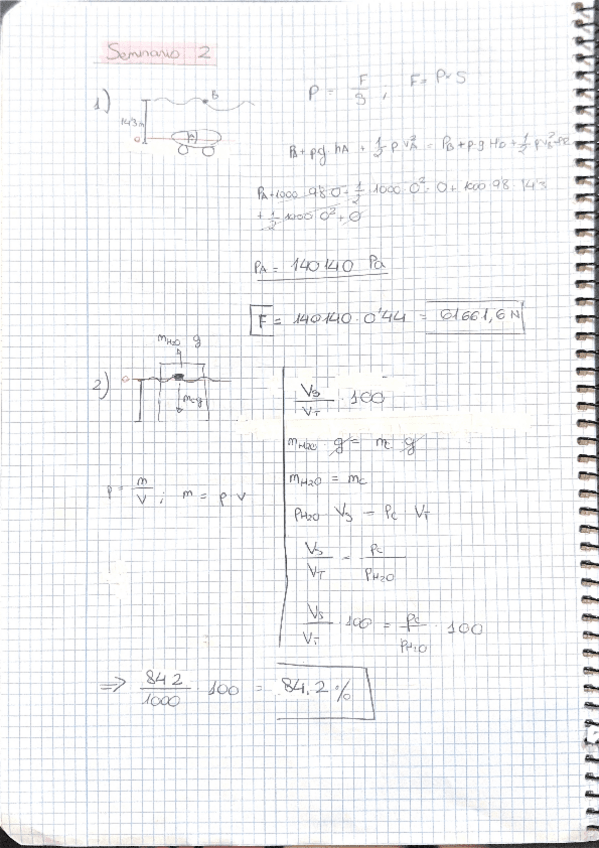 Seminario 2
1)
B
14'3m
0
A
P = F/S ; F = P · S
P_B + ρg h_A + 1/2 ρ v_A² = P_B + ρ g H_D + 1/2 ρ v_B²
P_A + 1000 9'8 0 + 1/2 1000 0² = 0 + 1000 9'8 14'3
+ 1/2 1000 0² + 0
P_A = 140140 Pa
F = 140140 · 0'44 = 61661,6 N
m_H2O g
2)
0
m_c g
ρ = m/V ; m = ρ V
V_S/V_T · 100
m_H2O g = m g
m_H2O = m_c
ρ_H2O V_S = ρ_c V_T
V_S/V_T = ρ_c/ρ_H2O
V_S/V_T · 100 = ρ_c/ρ_H2O · 100
⇒ 842/1000 · 100 = 84.2 %